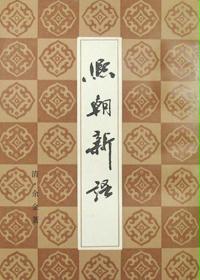 熙朝新語
清 余金 著